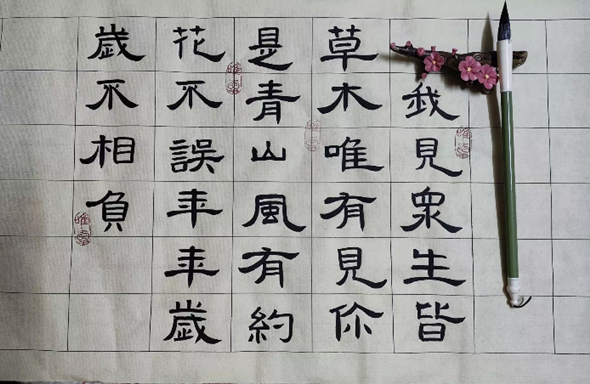 我見眾生皆
草木唯有見你
是青山風有約
花不誤年年歲
歲不相負